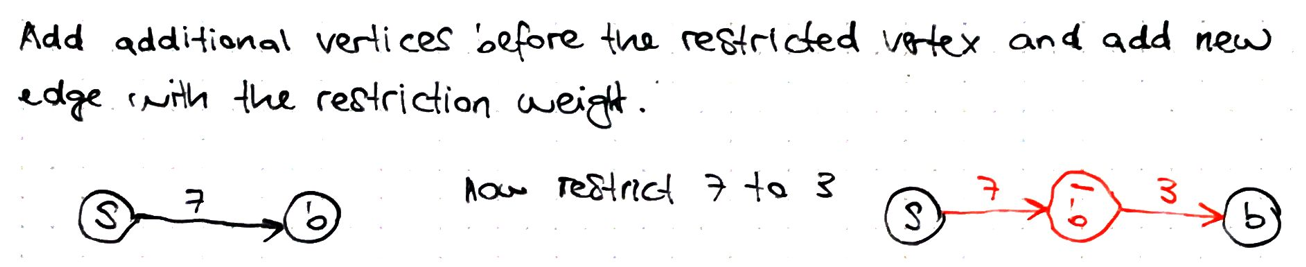 Add additional vertices before the restricted vertex and add new
edge with the restriction weight.
S 7 b now restrict 7 to 3 S 7 b̄ 3 b